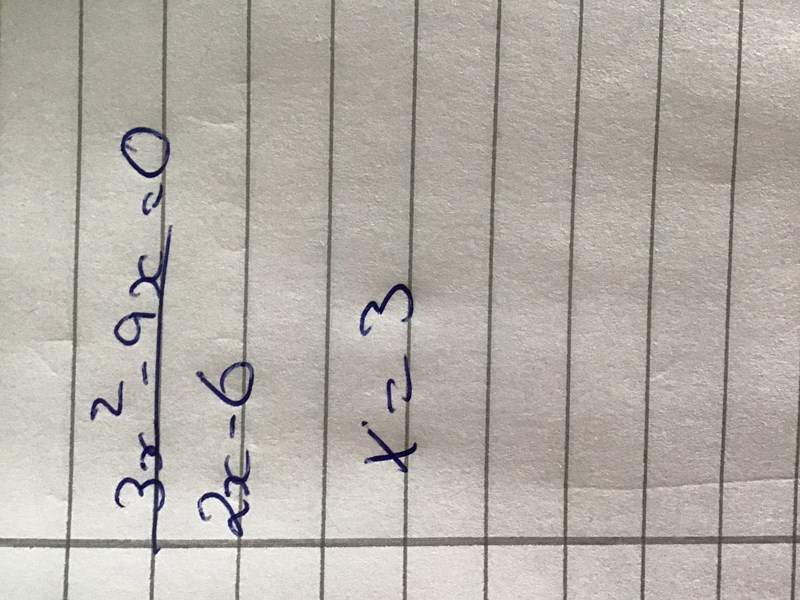 3x² - 9x = 0
2x - 6
x = 3